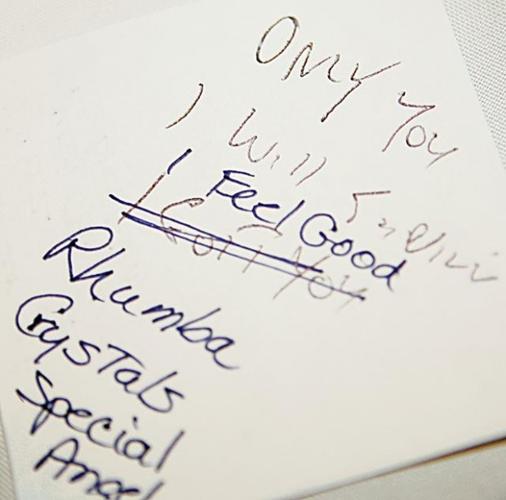 Only You
I Will Survive
I Feel Good
I Got You
Rhumba
Crystals
Special
Angel